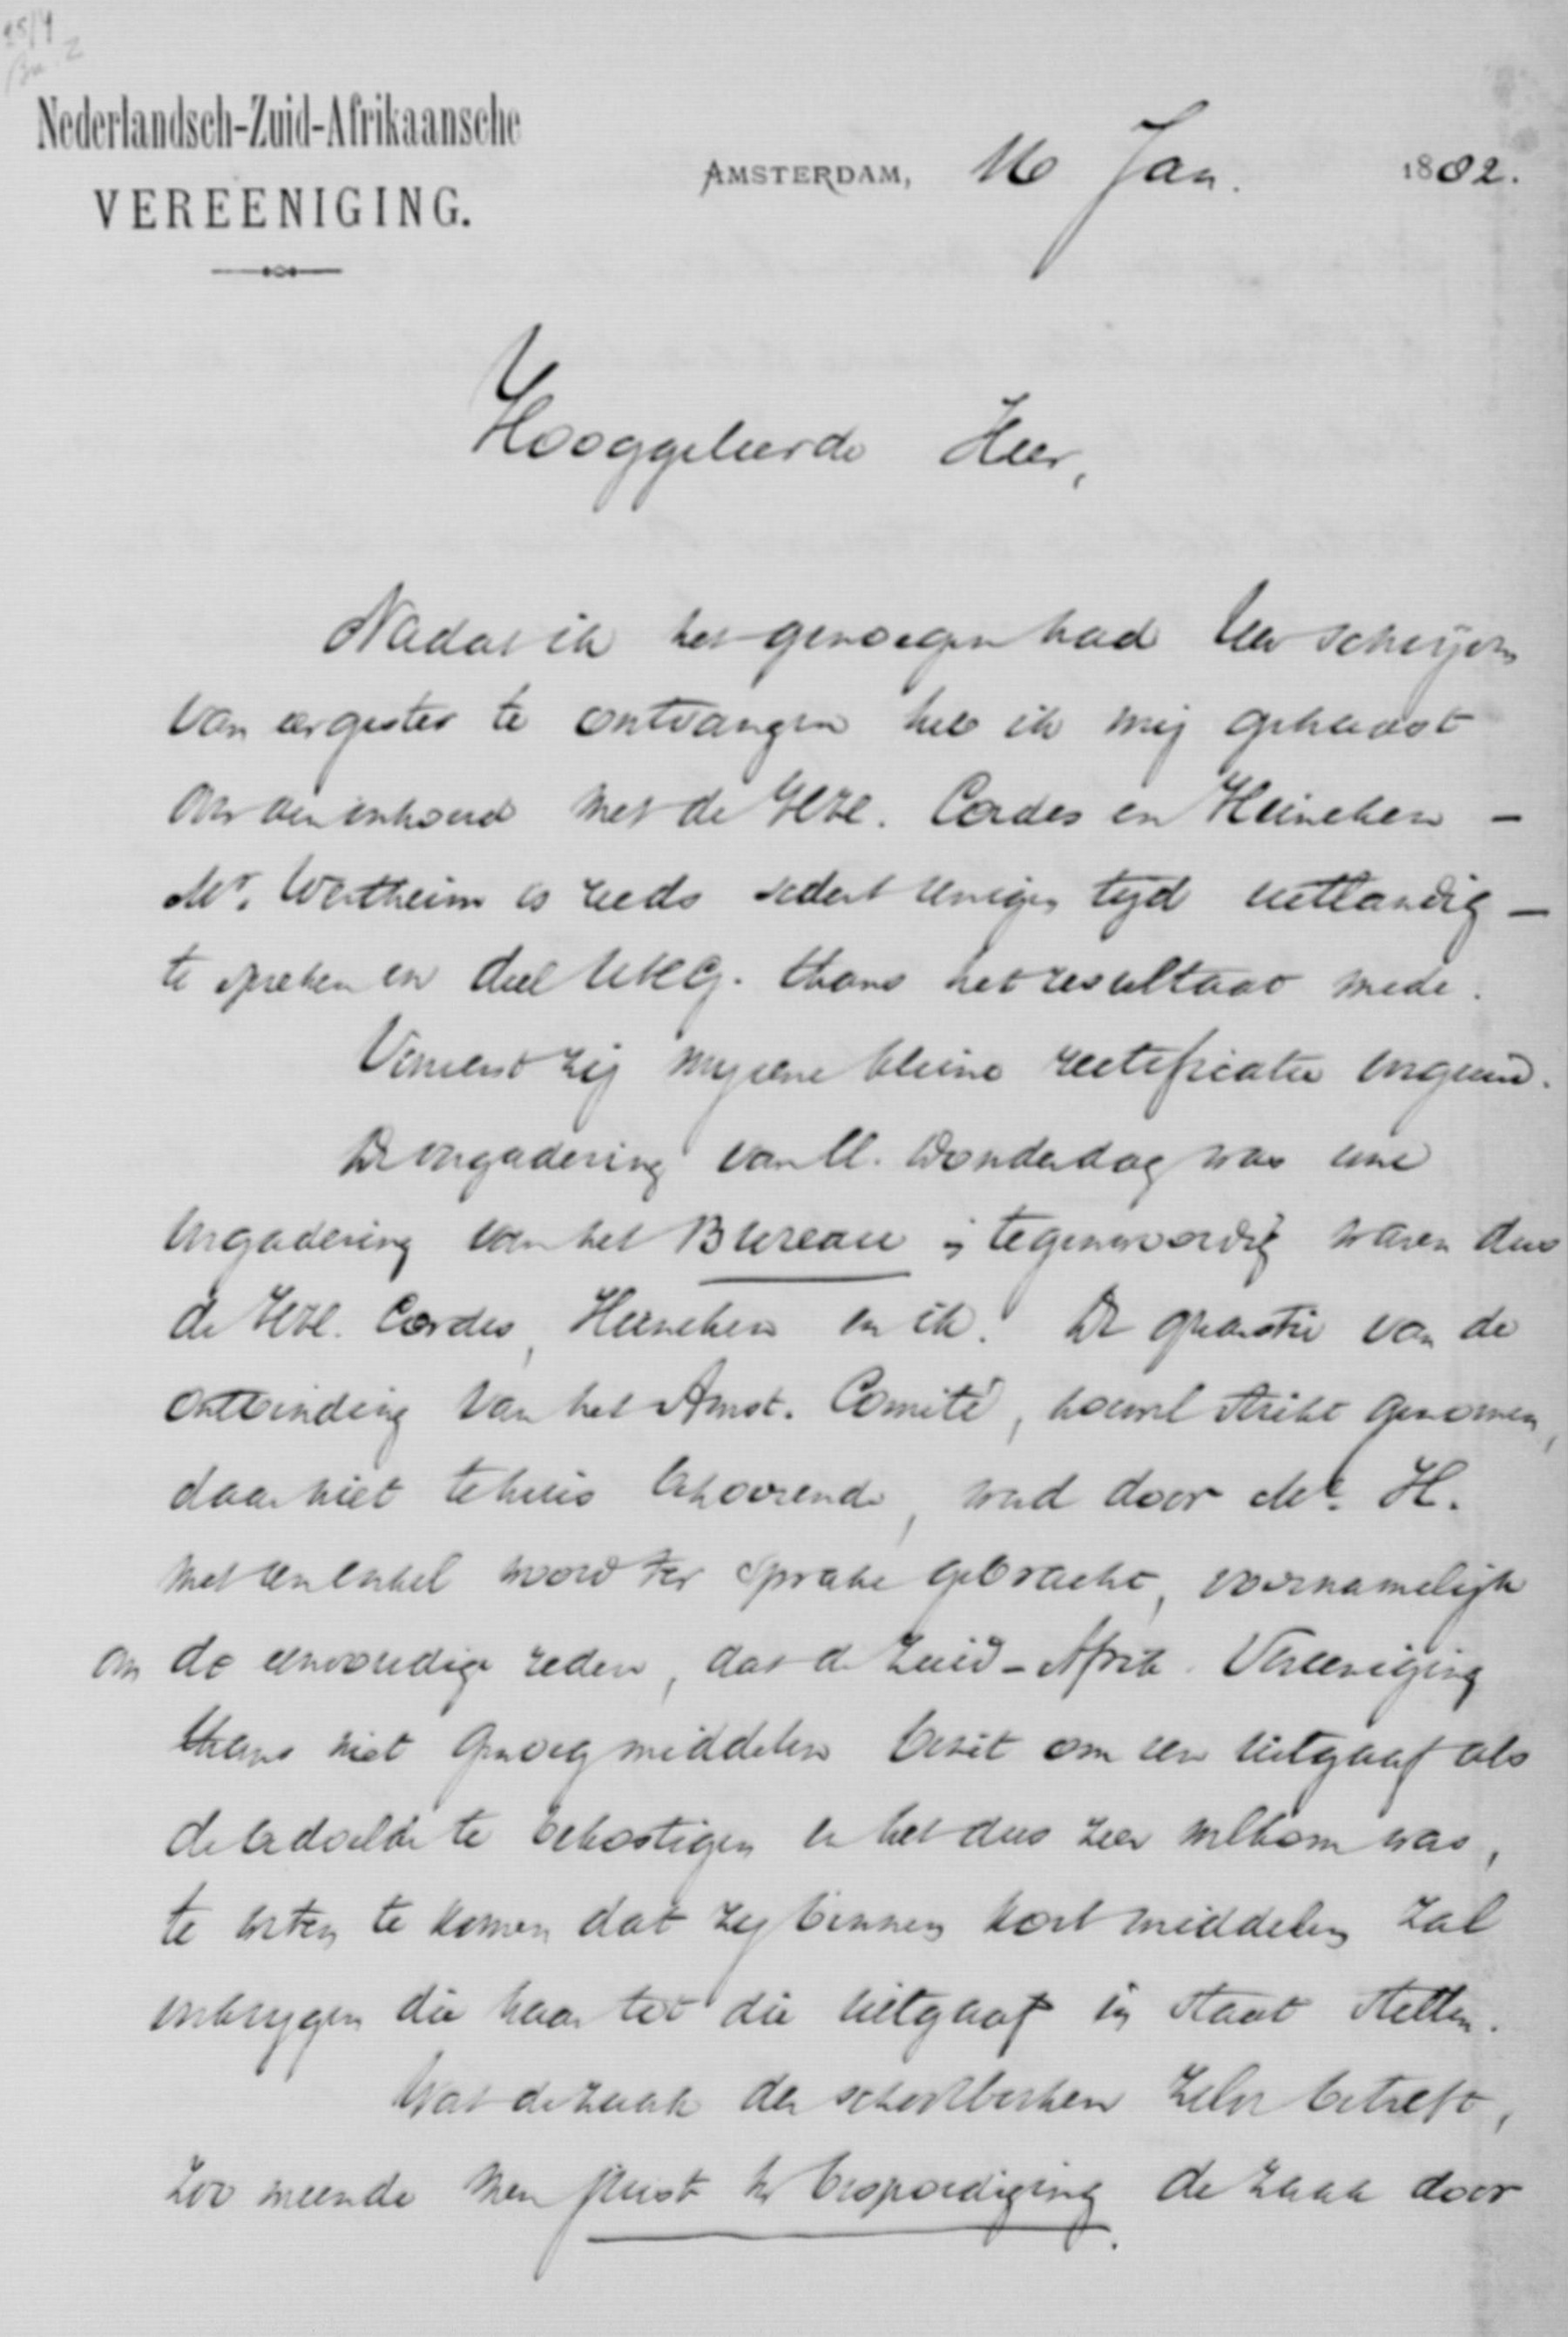 Nederlandsch-Zuid-Afrikaansche
VEREENIGING.
AMSTERDAM, 16 Jan. 1882.
Hooggeleerde Heer,
Nadat ik het genoegen had Uw schrijven
van eergister te ontvangen heb ik mij gehaast
over den inhoud met de HH. Cordes en Heineken –
Mr. Wertheim is reeds sedert eenigen tijd uitlandig –
te spreken en deel UHG. thans het resultaat mede.
Vooreerst zij mij eene kleine rectificatie vergund.
De vergadering van ll. Donderdag was eene
vergadering van het Bureau; tegenwoordig waren dus
de HH. Cordes, Heineken en ik. De quaestie van de
ontbinding van het Amst. Comité, hoewel strikt genomen,
daar niet tehuis behoorende, werd door Mr. H.
met een enkel woord ter sprake gebracht, voornamelijk
om de eenvoudige reden, dat de Zuid-Afrik. Vereeniging
thans niet genoeg middelen bezit om een uitgaaf als
de bedoelde te bekostigen en het dus zeer welkom was,
te weten te komen dat zij binnen kort middelen zal
verkrijgen die haar tot die uitgaaf in staat stellen.
Wat de zaak der schoolboeken zelve betreft,
zoo meende men juist ter bespoediging de zaak door